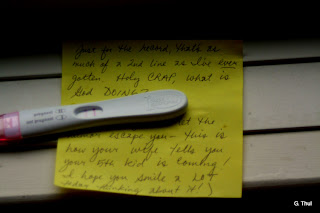 Just for the record, that's as
much of a 2nd line as I've ever
gotten. Holy CRAP, what is
God DOING?
the
escape you - this is
how your wife tells you
your 5th kid is coming!
I hope you smile a lot
today thinking about it!
G. Thul